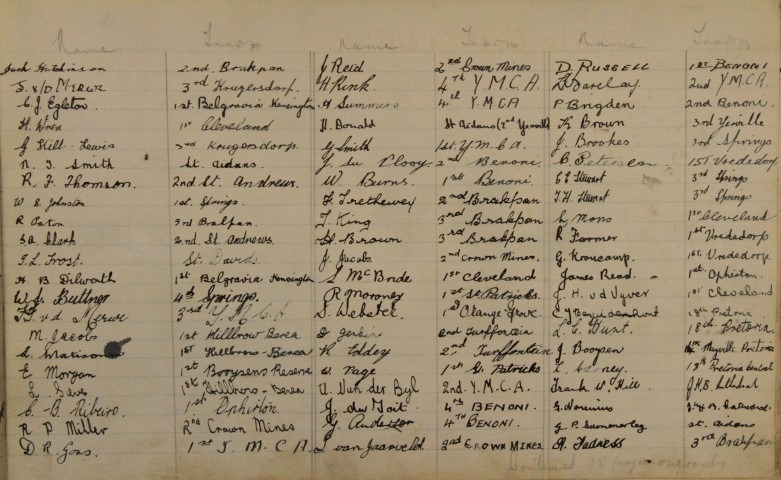 Name Troop Name Troop Name Troop
Jack Hutchinson 2nd. Brakpan J Reid 2nd Crown Mines D. RUSSELL 1st BENONI
S. v/d Merwe 3rd Krugersdorf. H Rink. 4th Y.M.C.A. D Barclay. 2nd Y.M.C.A.
C.J. Egleton 1st. Belgravia Kensington H Summers 4th Y.M.C.A P Brigden 2nd Benoni.
H. Wren 1st Cleveland H. Donald St Aidans (2nd Yeoville) K Brown 3rd Yeoville
G Hill-Lewis 3rd Krugersdorp G Smith 1st. Y.M.C.A. J. Brookes 3rd Springs
N. J. Smith St. Aidans. J du Plooy. 2nd Benoni C. Petersen 1st Vrededorp
R. F. Thomson. 2nd St. Andrews. W Burns. 1st Benoni C E Stewart 3rd Springs
W E Johnston 1st. Springs. F. Trethewey 2nd Brakpan J. H. Stewart 3rd Springs
R Paton 3rd Brakpan. J. King 3rd Brakpan L Mons 1st Cleveland
S.A. Clark 2nd. St. Andrews. H. Brown 3rd Brakpan R Farmer 1st Vrededorp
T. L. Frost. St. Davids. J. Jacobs 2nd Crown Mines. G. Kroucamp. 1st. Vrededorp
H. B Dilworth 1st Belgravia Kensington S McBride 1st Cleveland James Read. 1st Ophirton.
W. J. Buttner 4th Springs. R Moroney 1st St Patricks. J. H. v d Vyver 1st Cleveland
v.d. Merwe 3rd Y. M. C. A S. Webster. 1st Orange Grove 18th Pretoria
M. Jacobs 1st Hillbrow Berea 2nd Turffontein L. G. Hunt. 18th Pretoria
L. Marison 1st Hillbrow-Berea K Eddey 2nd Turffontein J. Booysen Mayville Pretoria
E Morgan 1st Booysens Reserve W Page 1st St Patricks Pretoria
1st Hillbrow-Berea U. Van der Byl 2nd. Y.M.C.A. Frank W. Hill. J.H.B.
C. B. Ribeiro. 1st Ophirton. J du Toit. 4th BENONI.
R P Miller 2nd Crown Mines G. Anderson 4th BENONI. G. P. Summerley St. Aidans
D. R. Goss. 1st Y. M. C A. J. van Jaarsveld. 2nd CROWN MINES. A. Tadness 3rd Brakpan
Continued